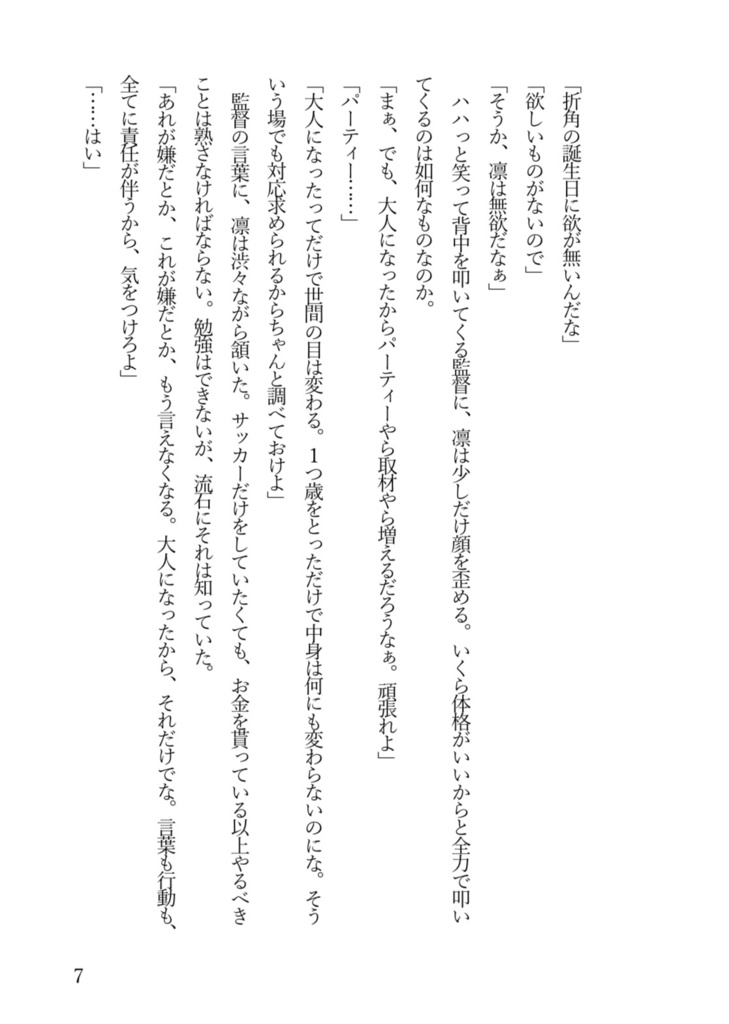 「折角の誕生日に欲が無いんだな」
「欲しいものがないので」
「そうか、凛は無欲だなぁ」
　ハハっと笑って背中を叩いてくる監督に、凛は少しだけ顔を歪める。いくら体格がいいからと全力で叩い
てくるのは如何なものなのか。
「まぁ、でも、大人になったからパーティーやら取材やら増えるだろうなぁ。頑張れよ」
「パーティー……」
「大人になったってだけで世間の目は変わる。１つ歳をとっただけで中身は何にも変わらないのにな。そう
いう場でも対応求められるからちゃんと調べておけよ」
　監督の言葉に、凛は渋々ながら頷いた。サッカーだけをしていたくても、お金を貰っている以上やるべき
ことは熟さなければならない。勉強はできないが、流石にそれは知っていた。
「あれが嫌だとか、これが嫌だとか、もう言えなくなる。大人になったから、それだけでな。言葉も行動も、
全てに責任が伴うから、気をつけろよ」
「……はい」
7